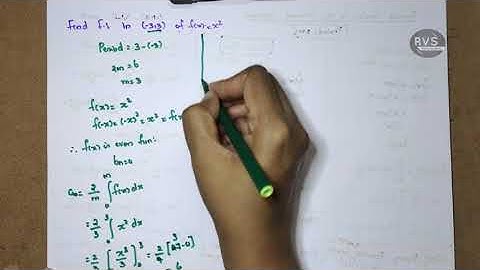 Find F.S in (-3,3) of f(x)=x²
RVS
Period = 3-(-3)
2m = 6
m=3
f(x) = x²
f(-x) = (-x)² = x² = f(
∴ f(x) is even fun:
bn=0
a₀ = 2/m ∫₀ᵐ f(x) dx
= 2/3 ∫₀³ x² dx
= 2/3 [x³/3]₀³ = 2/9 [27-0]
3
6